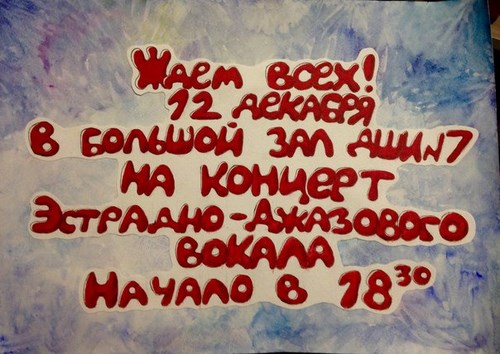 Ждем всех!
12 декабря
в большой зал ДШИ№7
на концерт
Эстрадно-Джазового
вокала
Начало в 18 30